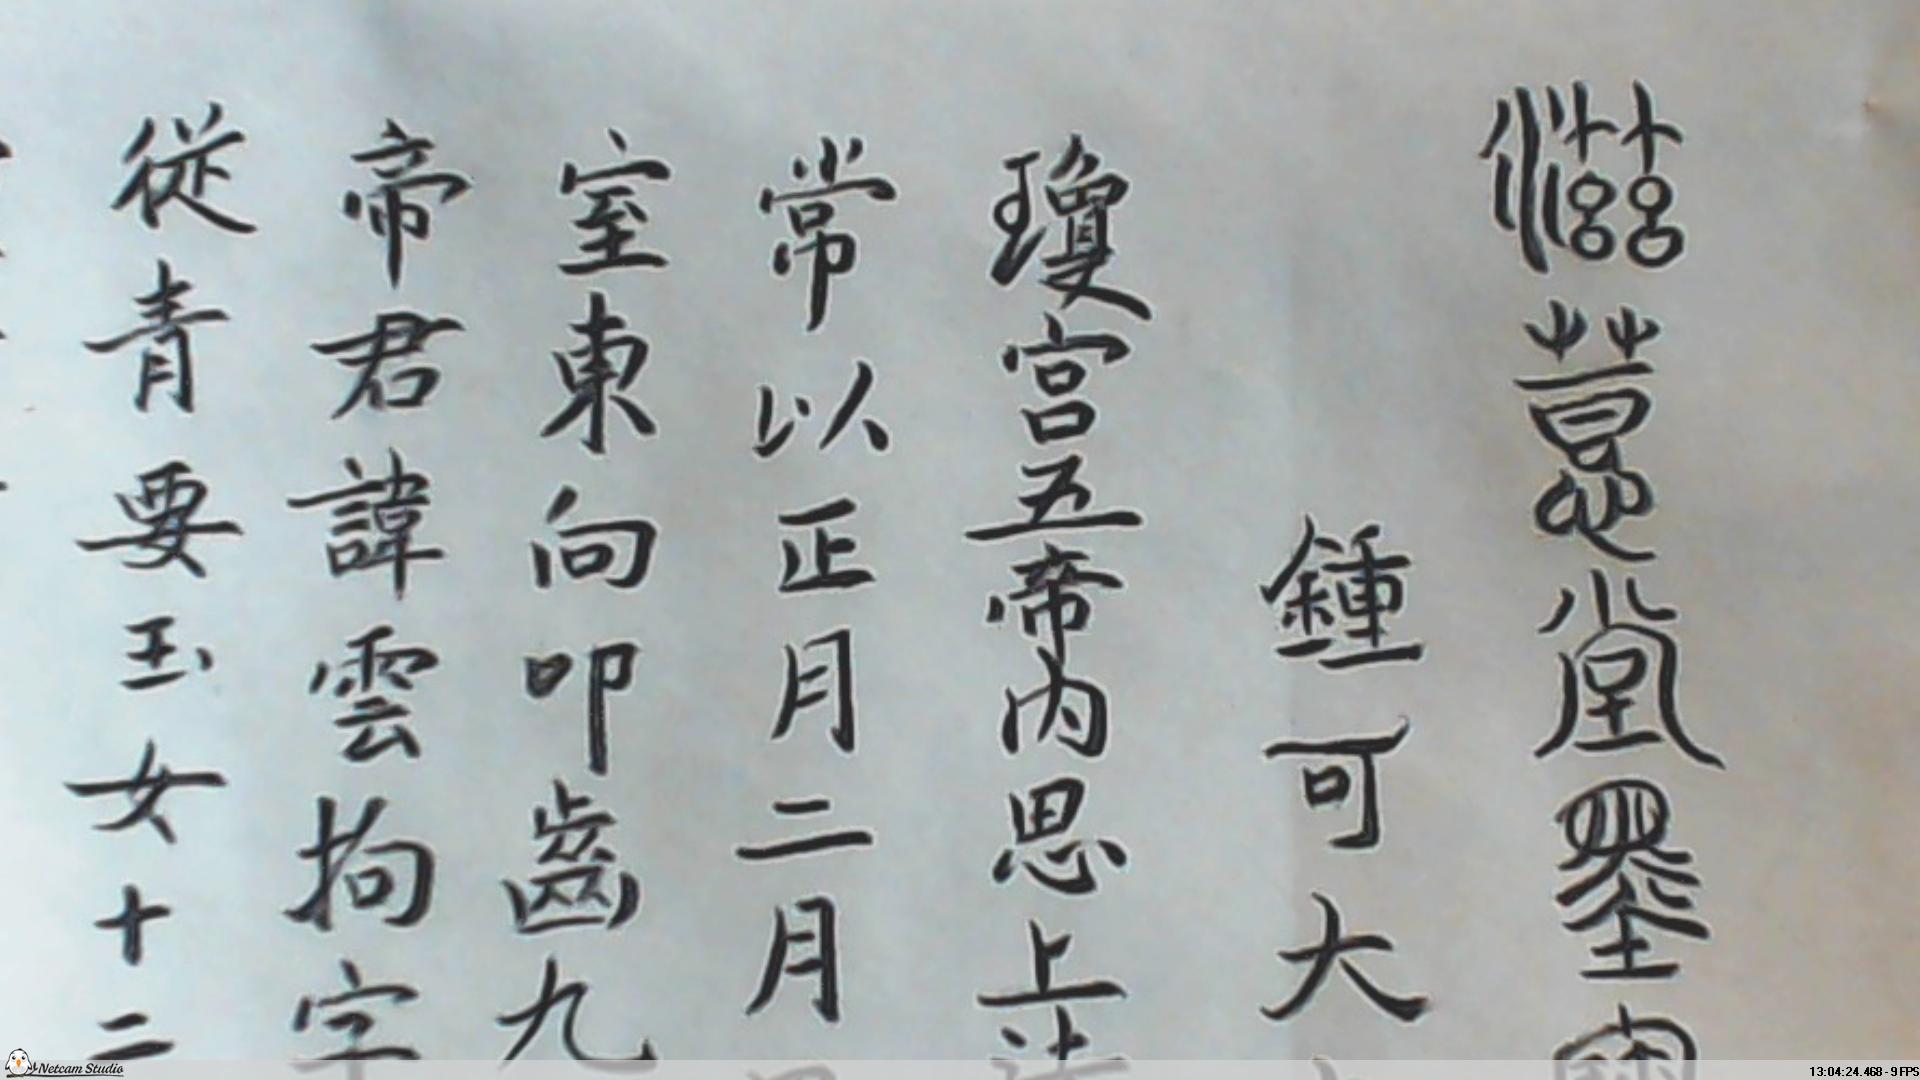 滋蕙堂墨寶
鍾可大
瓊宮五帝內思上法
常以正月二月
室東向叩齒九
帝君諱雲拘字
從青要玉女十二
Netcam Studio
13:04:24.468 - 9 FPS